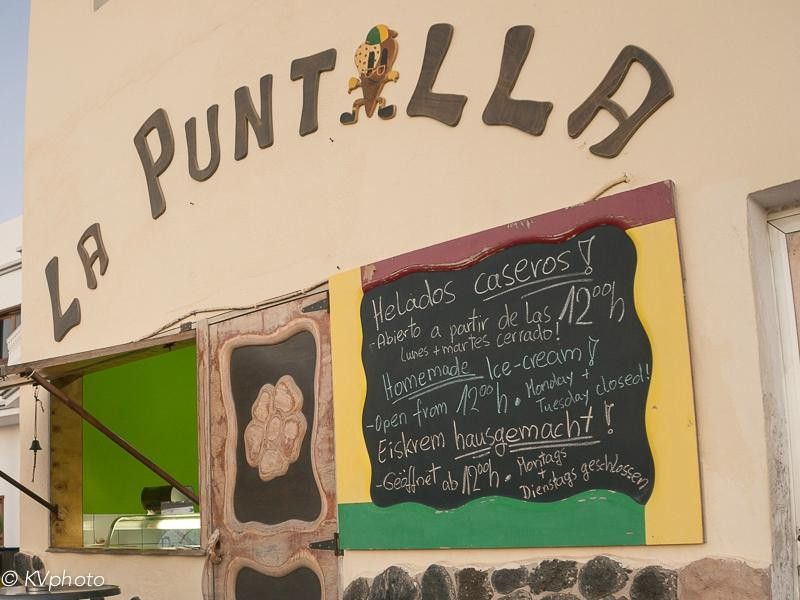 LA PUNTILLA
Helados caseros!
-Abierto a partir de las 12⁰⁰h
Lunes + martes cerrado!
Homemade Ice-cream!
-Open from 12⁰⁰h. Monday +
Tuesday closed!
Eiskrem hausgemacht!
-Geäffnet ab 12⁰⁰h. Montags
+ Dienstags geschlossen
© KVphoto